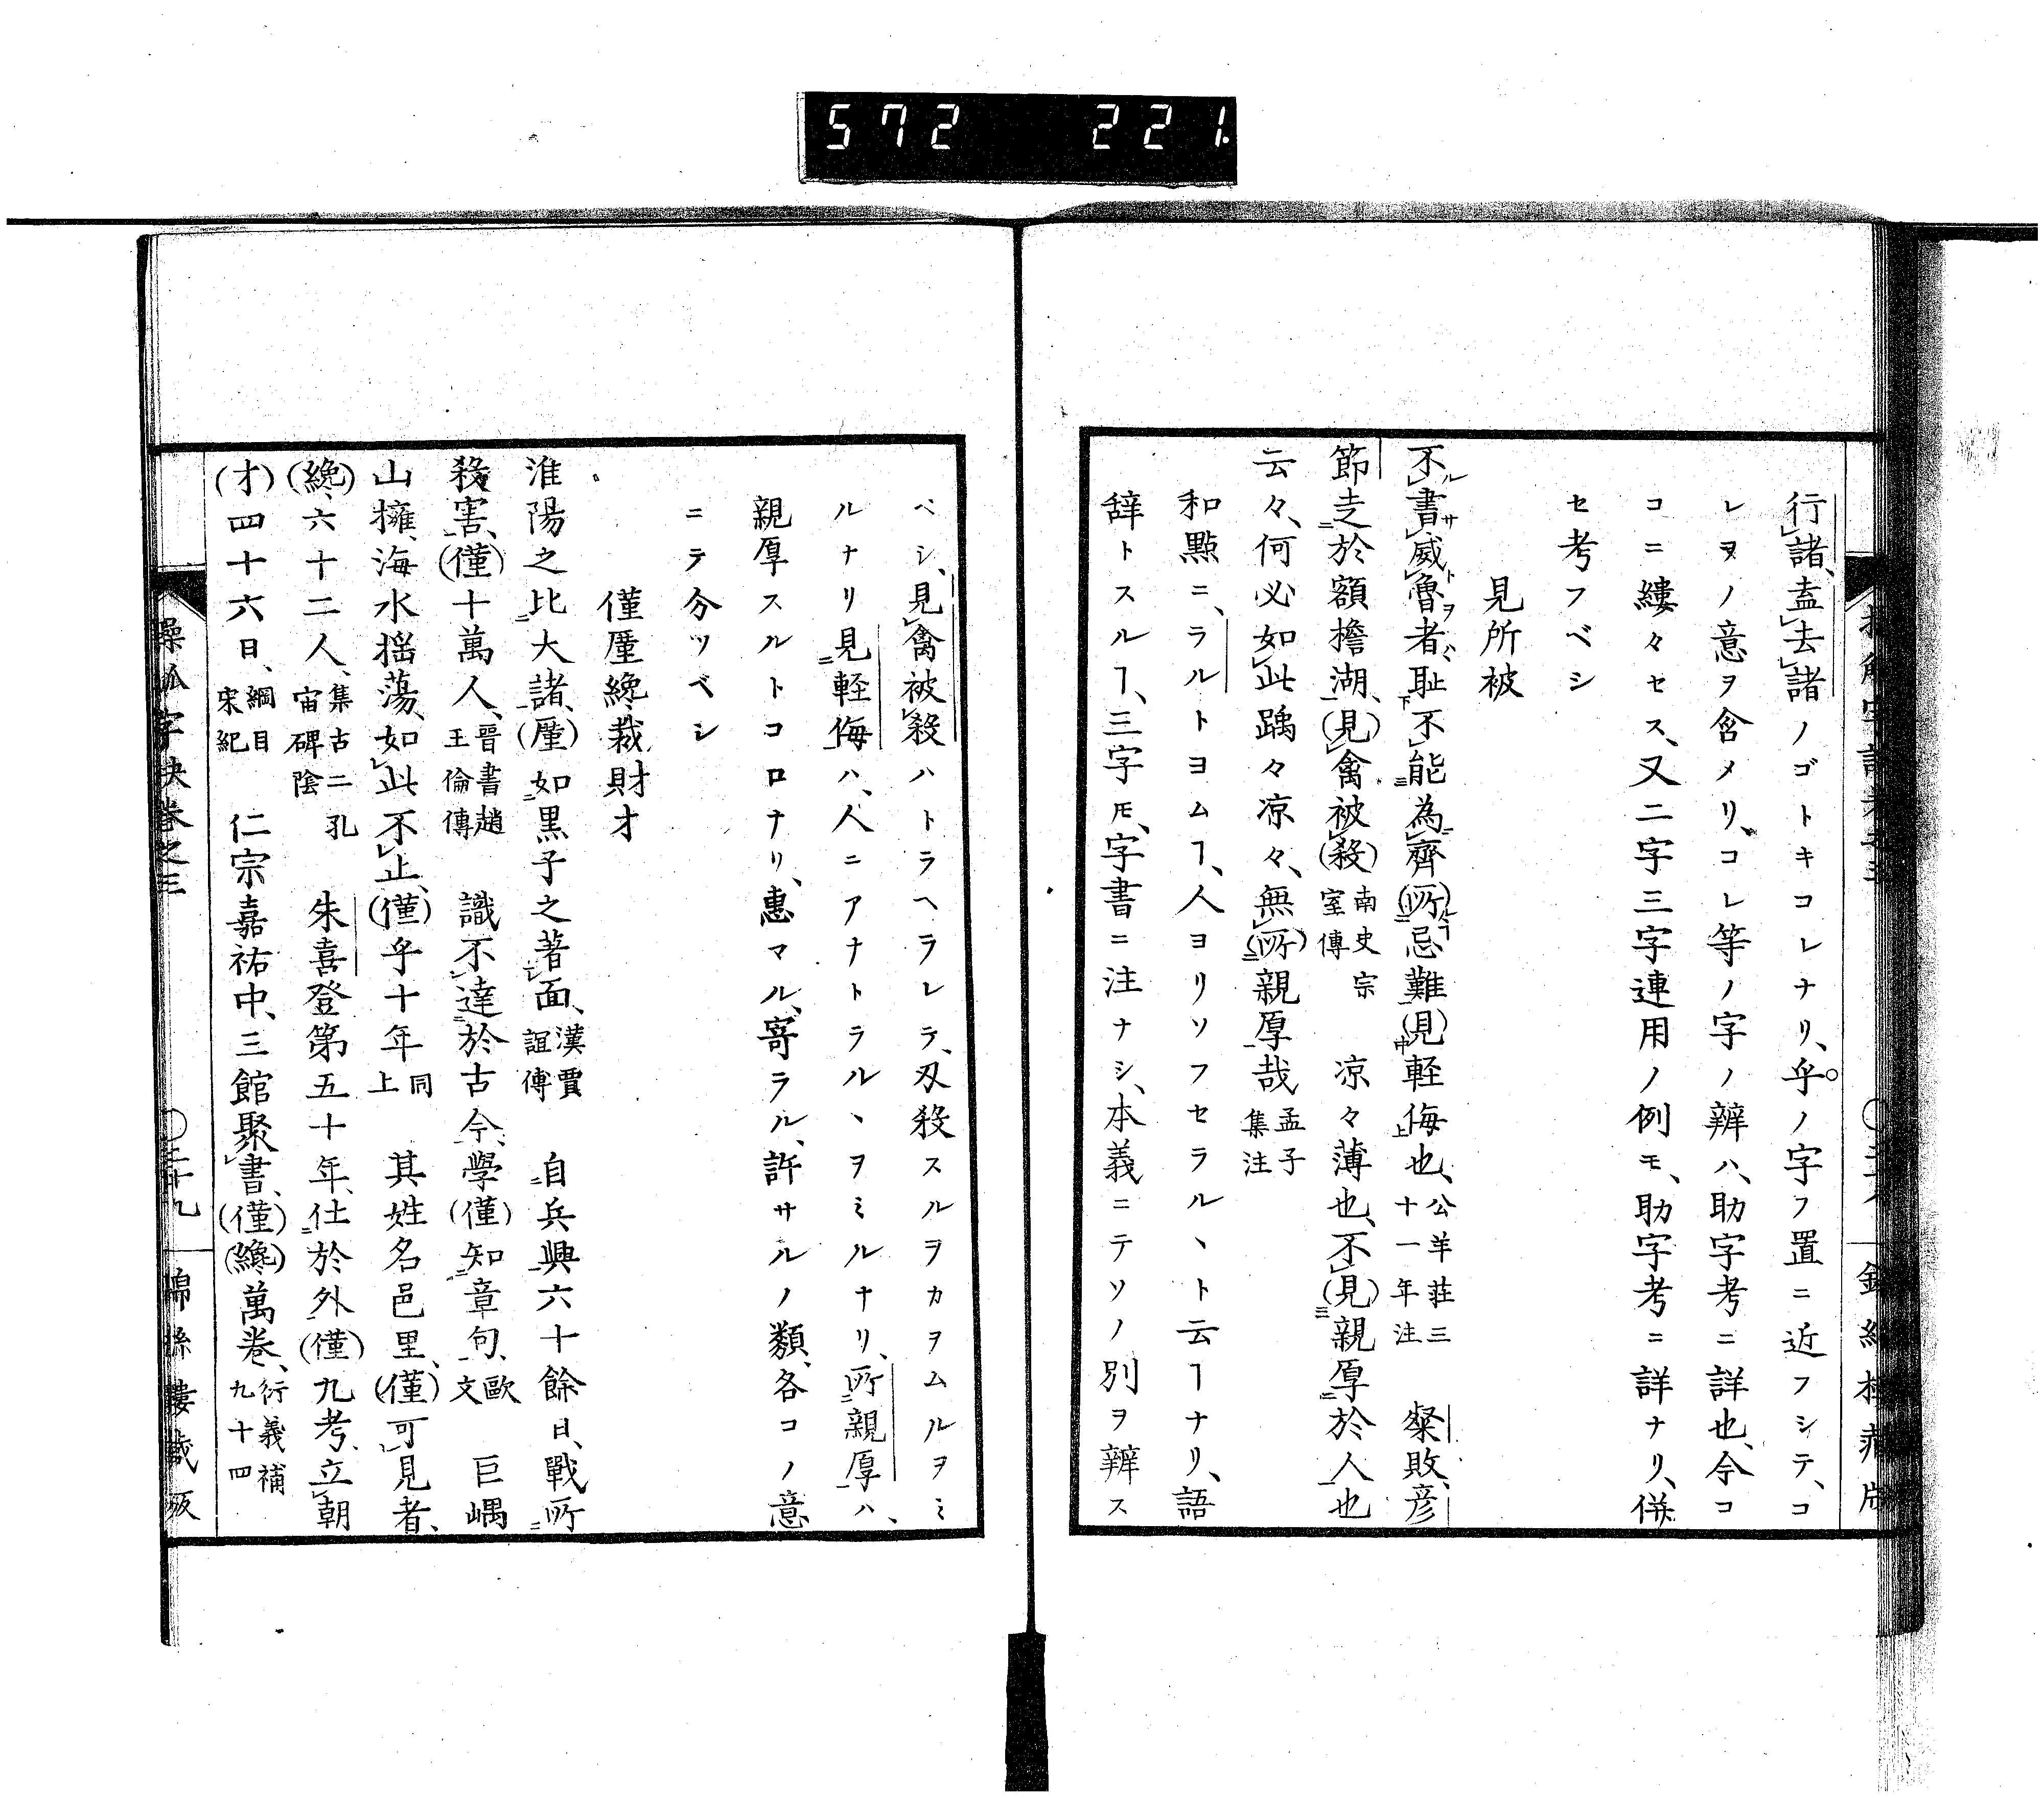 572 221.
行諸、盍去諸ノゴトキコレナリ、乎ノ字フ置ニ近フシテ、コ
レヌノ意ヲ含メリ、コレ等ノ字ノ辨ハ、助字考ニ詳也、今コ
コニ縷々セス、又二字三字連用ノ例モ、助字考ニ詳ナリ、併
セ考フベシ
見所被
不書威魯者恥不能為齊(所)忌難(見)軽侮也、公羊荘三十一年注 粲敗、彦
節走於額檐湖、(見)禽被(殺)南史宗室傳 凉々薄也、不(見)親厚於人也
云々、何必如此踽々凉々、無(所)親厚哉孟子集注
和點ニ、ラルトヨムヿ、人ヨリソフセラルヽト云ヿナリ、語
辞トスルヿ、三字𪜈、字書ニ注ナシ、本義ニテソノ別ヲ辨ス
ベシ、見禽被殺ハトラヘラレテ、刄殺スルヲカヲムルヲミ
ルナリ見軽侮ハ、人ニアナトラルヽヲミルナリ、所親厚ハ、
親厚スルトコロナリ、惠マル、寄ラル、許サルノ類、各コノ意
ニテ分ツベシ
僅厪纔裁財才
淮陽之比大諸、(厪)如黒子之著面、漢賈誼傳 自兵興六十餘日、戰所
殺害、(僅)十萬人、晋書趙王倫傳 識不達於古今、學(僅)知章句、歐文 巨嵎
山擁、海水揺蕩、如此不止、(僅)乎十年同上 其姓名邑里、(僅)可見者、
(纔)六十二人、集古二孔宙碑陰 朱喜登第五十年、仕於外(僅)九考、立朝
(才)四十六日、綱目宋紀 仁宗嘉祐中、三館聚書、(僅)(纔)萬巻、衍義補九十四
操觚字訣巻之三 〇二十九 錦絲樓蔵版